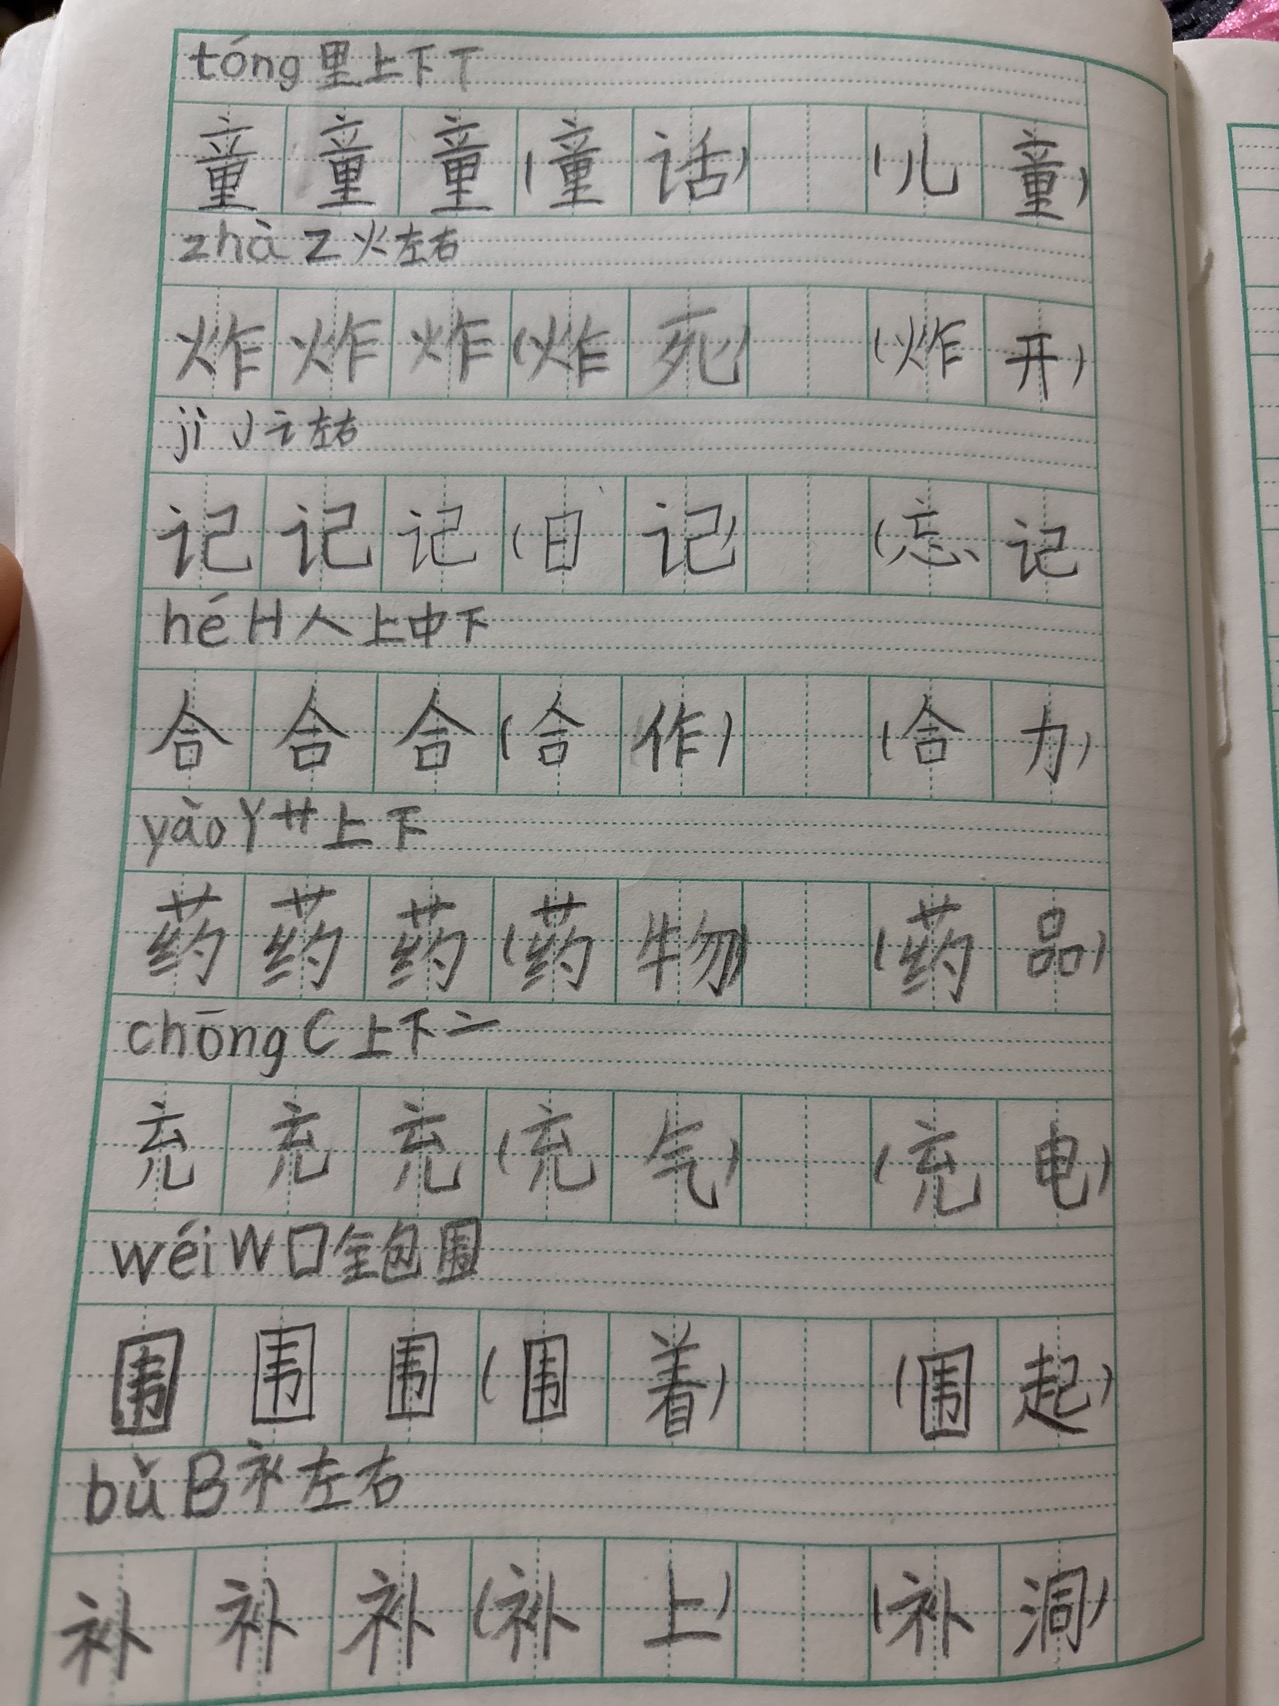 tóng 里上下 T
童童童(童话) (儿童)
zhà Z 火左右
炸炸炸(炸死) (炸开)
jì J 讠左右
记记记(日记) (忘记
hé H 人上中下
合合合(合作) (合力)
yào Y 艹上下
药药药(药物) (药品)
chōng C 上下亠
充充充(充气) (充电)
wéi W 口全包围
围围围(围着) (围起)
bǔ B 衤左右
补补补(补上) (补洞)